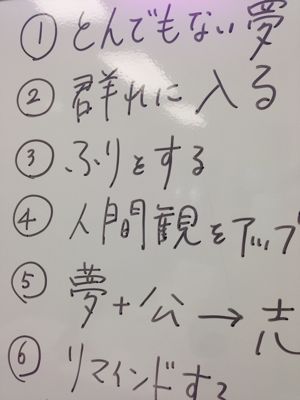 ① とんでもない夢
② 群れに入る
③ ふりをする
④ 人間観をアップ
⑤ 夢+公→志
⑥ リマインドする